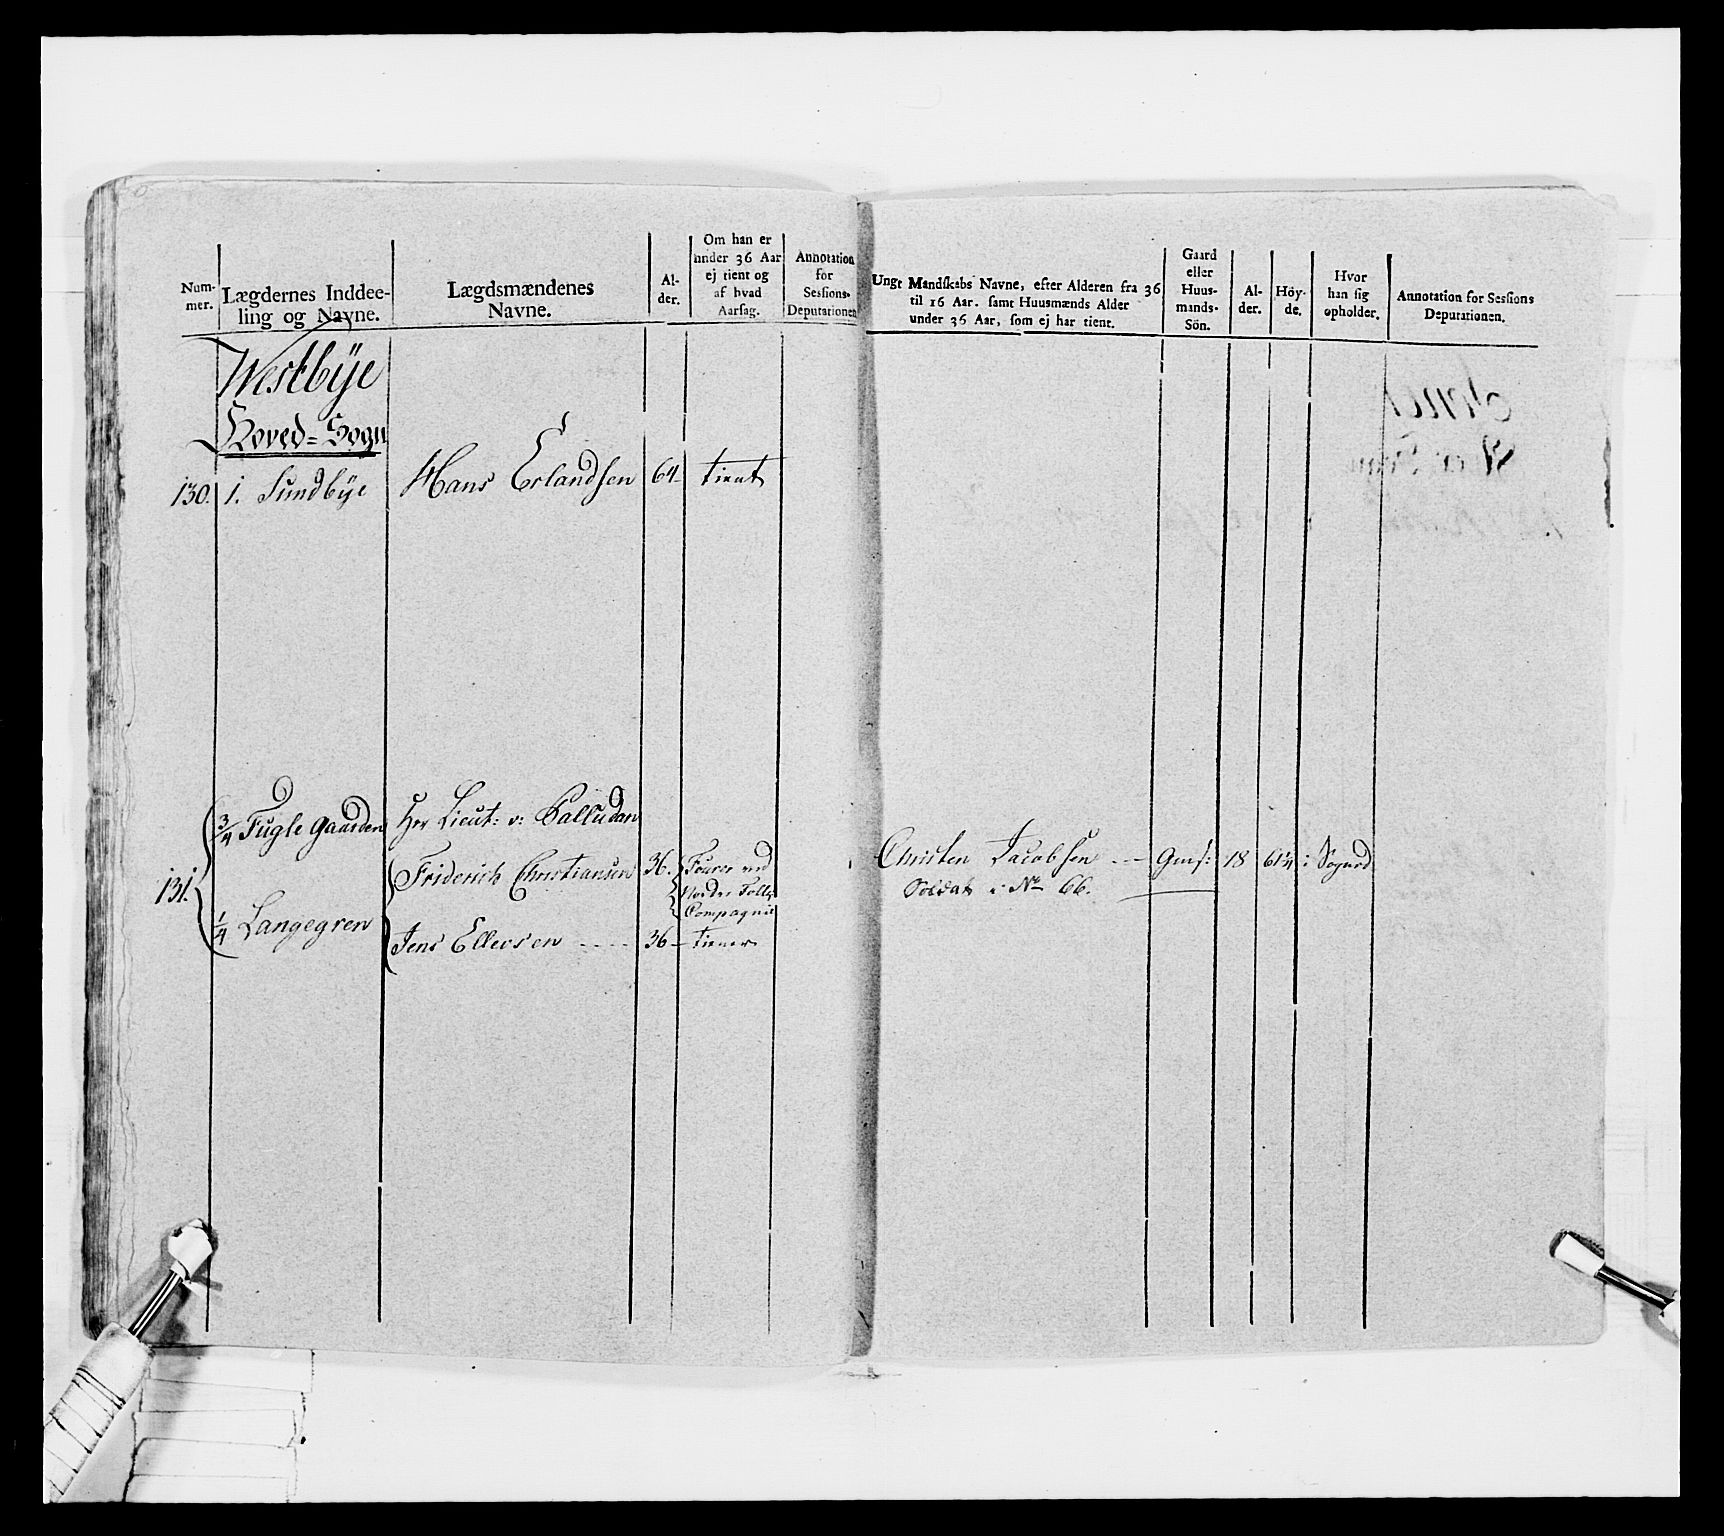 Num-
mer.
Lægdernes Inddee-
ling og Navne.
Lægdsmændenes
Navne.
Al-
der.
Om han er
under 36 Aar
ej tient og
af hvad
Aarsag.
Annotation
for
Sessions-
Deputationen
Westbÿe
Hoved=Sogn
130. 1. Sundbÿe Hans Erlandsen 64 tient
3/4 Fugle gaarden Her Lieut: v: Palludan
Friderich Christiansen 36. Fourer ved
Nordre Folloe
Compagnie
131.
1/4 Langegren
Jens Ellevsen 36 tiener
Ungt Mandskabs Navne, efter Alderen fra 36
til 16 Aar. samt Huusmænds Alder
under 36 Aar, som ej har tient.
Gaard
eller
Huus-
mands-
Sön.
Al-
der.
Höy-
de.
Hvor
han sig
opholder.
Annotation for Sessions
Deputationen.
Christen Jacobsen Gmf: 18 61¼ i Sogned
Soldat i No 66.